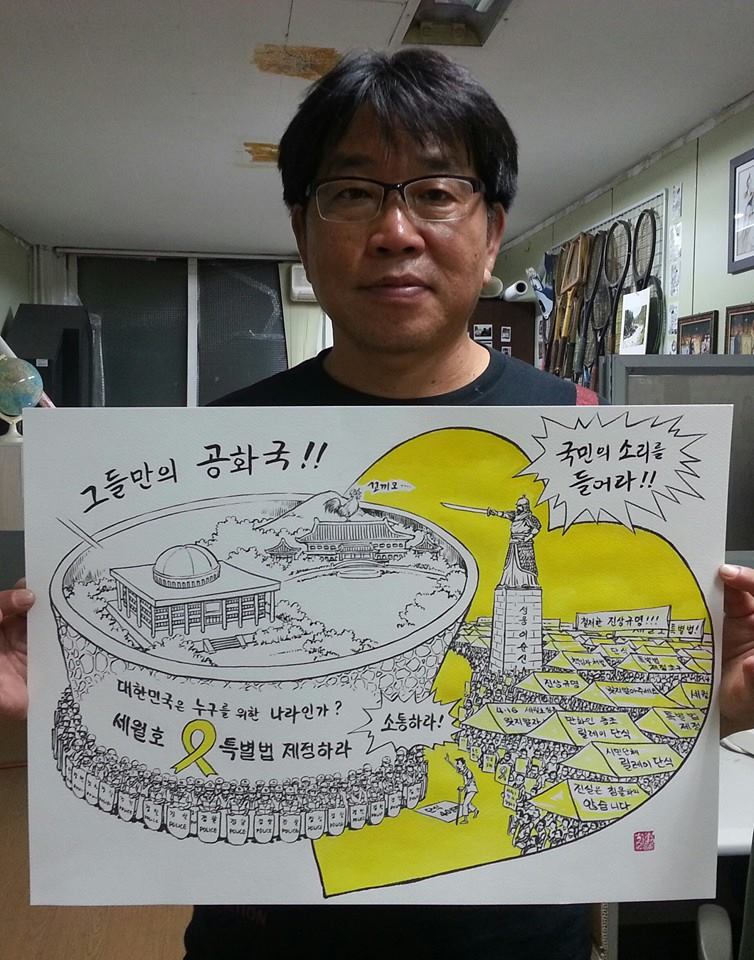 그들만의 공화국!!
꼬끼오...
국민의 소리를
들어라!!
성웅 이순신
철저한 진상규명!!!
특별법!
단식
특별법
진상규명
잊지말아주세요
세월
4.16 세월호
잊지말자
만화인 동조
릴레이 단식
특별법
제정
시민단체
릴레이 단식
진실은 침몰하지
않습니다
대한민국은 누구를 위한 나라인가?
세월호 특별법 제정하라
소통하라!
경찰
POLICE
POLICE
POLICE
POLICE
POLICE